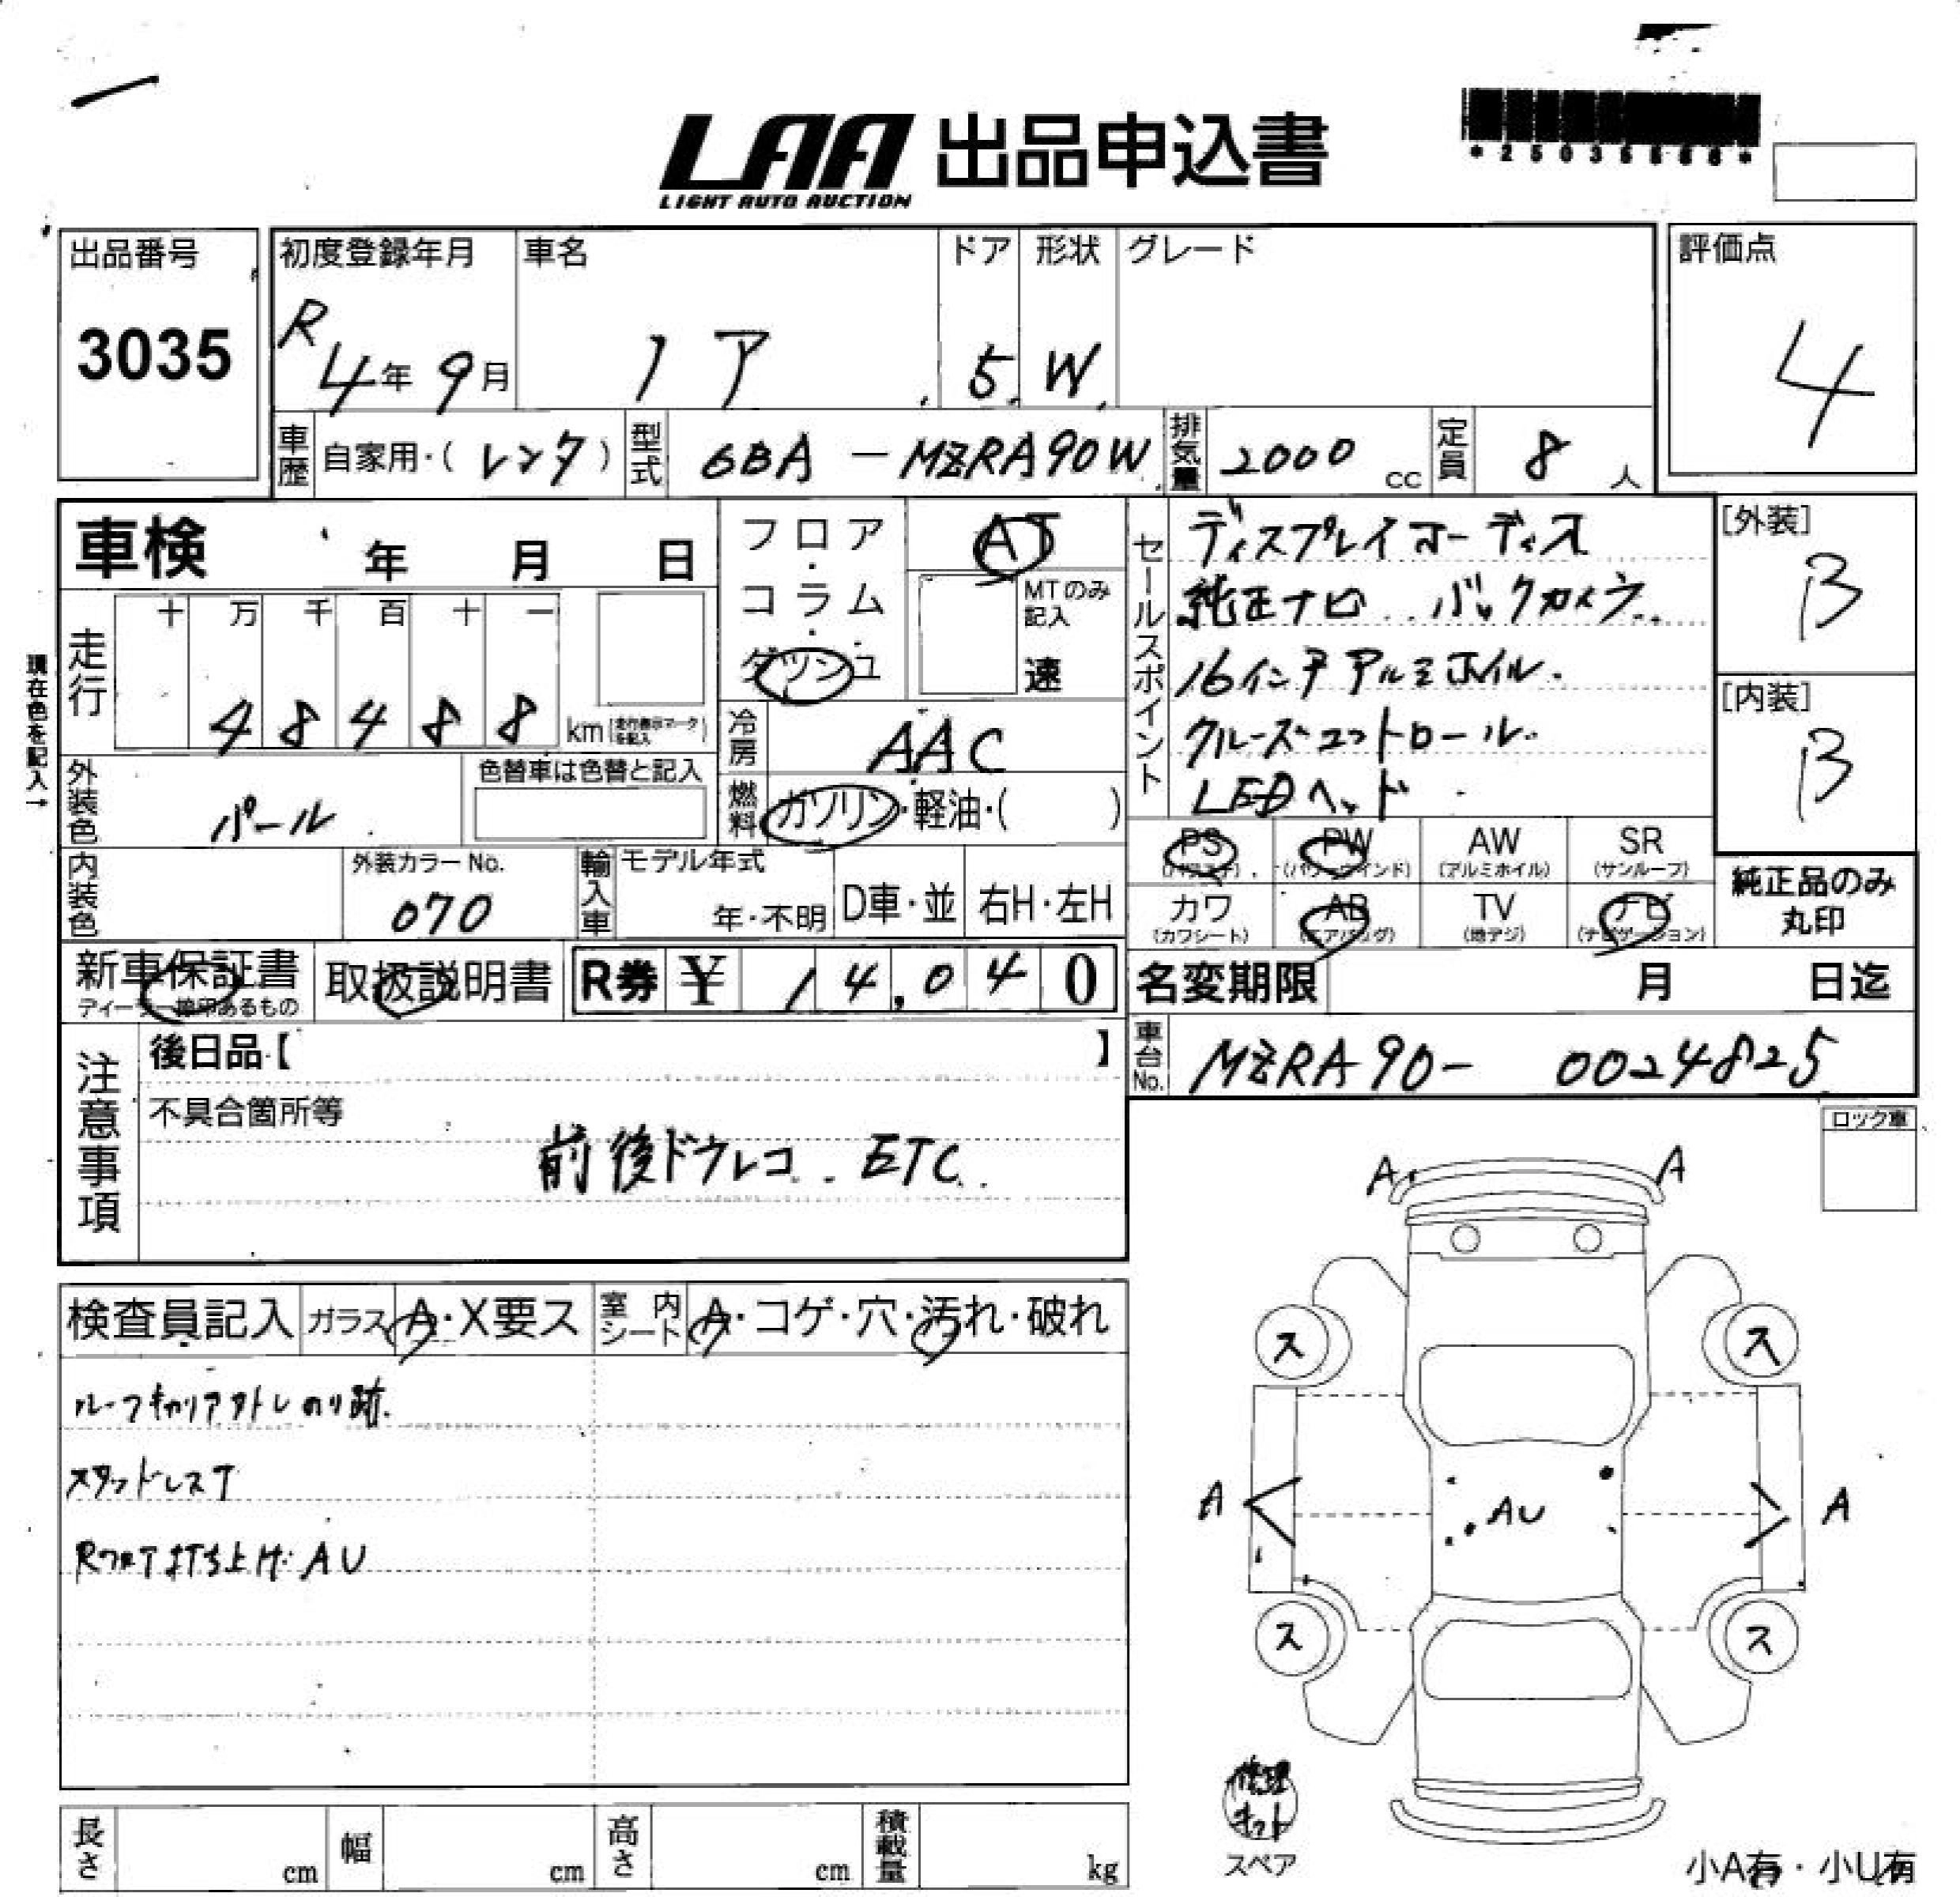 LAA 出品申込書
LIGHT AUTO AUCTION
出品番号
3035
初度登録年月
R 4年 9月
車名
ノア
ドア
5
形状
W
グレード
評価点
4
車歴 自家用・(レンタ)
型式 6BA - MZRA90W
排気量 2000 cc
定員 8 人
車検 年 月 日
フロア・コラム・ダッシュ
AT
MTのみ記入
速
セールスポイント
ディスプレイオーディオ
純正ナビ バックカメラ
16インチアルミホイル
クルーズコントロール
LEDヘッド
[外装]
B
[内装]
B
現在色を記入→
走行
十 万 千 百 十 一
4 8 4 8 8 km (走行表示マークを記入)
冷房 AAC
外装色 パール
色替車は色替と記入
燃料 ガソリン・軽油・( )
PS (パワステ)
PW (パワーウインド)
AW (アルミホイル)
SR (サンルーフ)
カワ (カワシート)
AB (エアバッグ)
TV (地デジ)
ナビ (ナビゲーション)
純正品のみ丸印
内装色
外装カラーNo.
070
輸入車 モデル年式
年・不明
D車・並
右H・左H
新車保証書
ディーラー捺印あるもの
取扱説明書
R券 ¥ 14,040
名変期限 月 日迄
車台No. MZRA90- 0024825
注意事項
後日品【 】
不具合箇所等
前後ドラレコ ETC
ロック車
検査員記入
ガラス A・X要ス
室内シート A・コゲ・穴・汚れ・破れ
ルーフキャリア外しのり跡
スタッドレスT
Rフロア打ち上げ AU
A A
ス ス
A AU A
ス ス
修理キット
スペア
小A有・小U有
長さ cm
幅 cm
高さ cm
積載量 kg